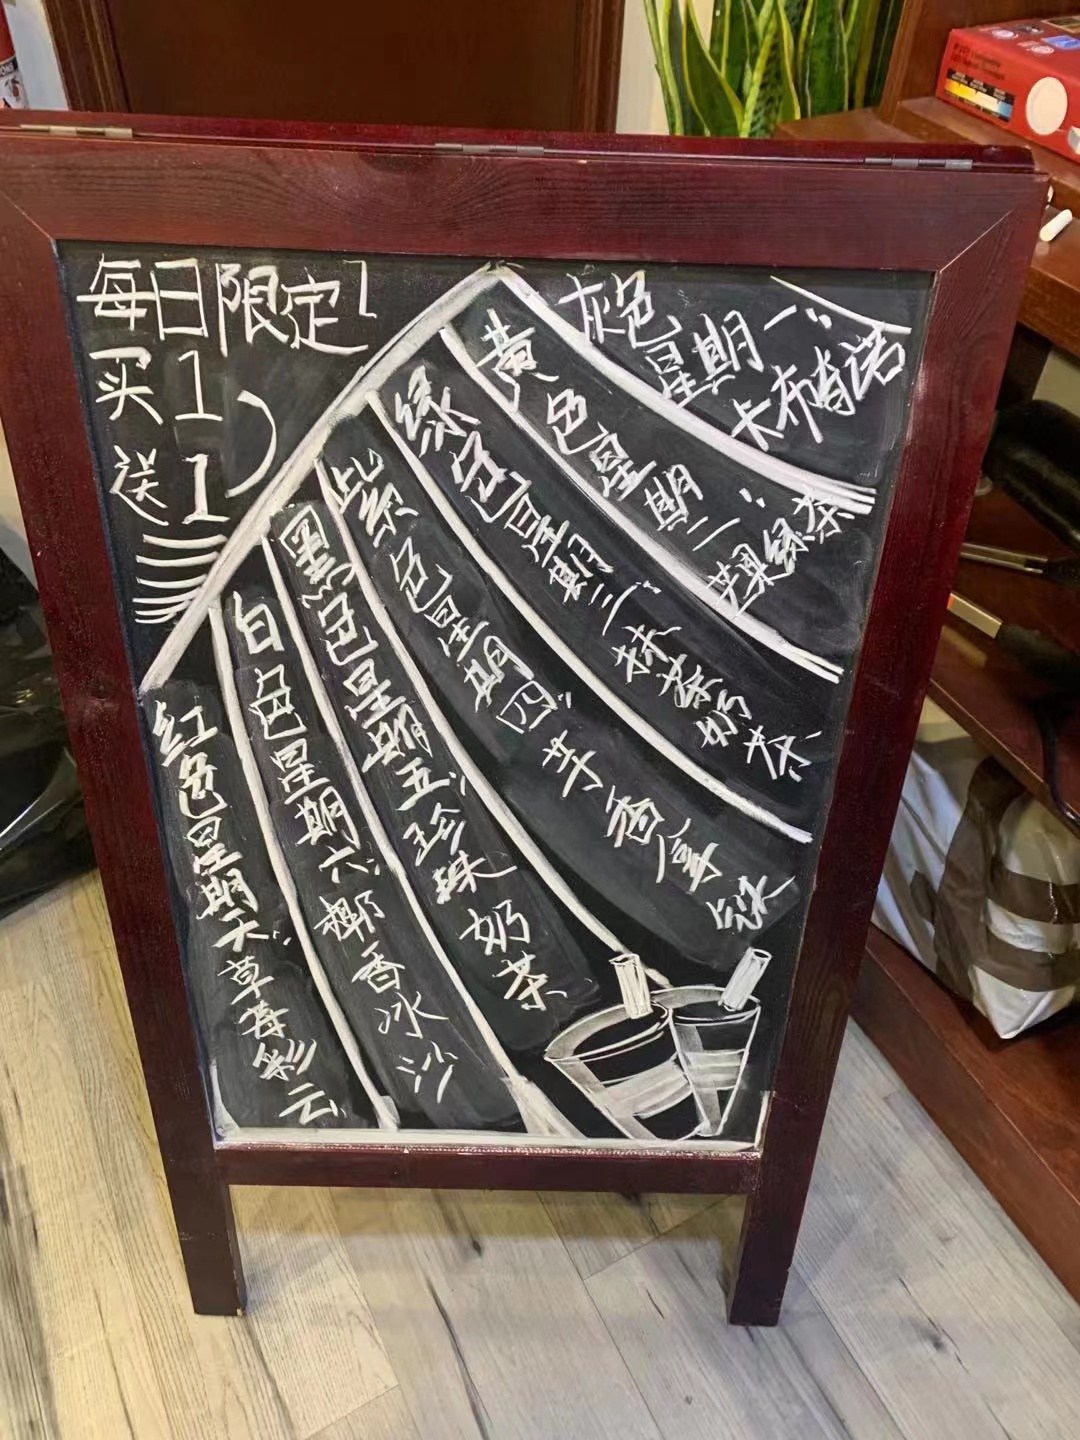 每日限定
买1
送1
灰色星期一:卡布奇诺
黄色星期二:芒果绿茶
绿色星期三:抹茶奶茶
紫色星期四:芋香拿铁
黑色星期五:珍珠奶茶
白色星期六:椰香冰沙
红色星期天:草莓彩云